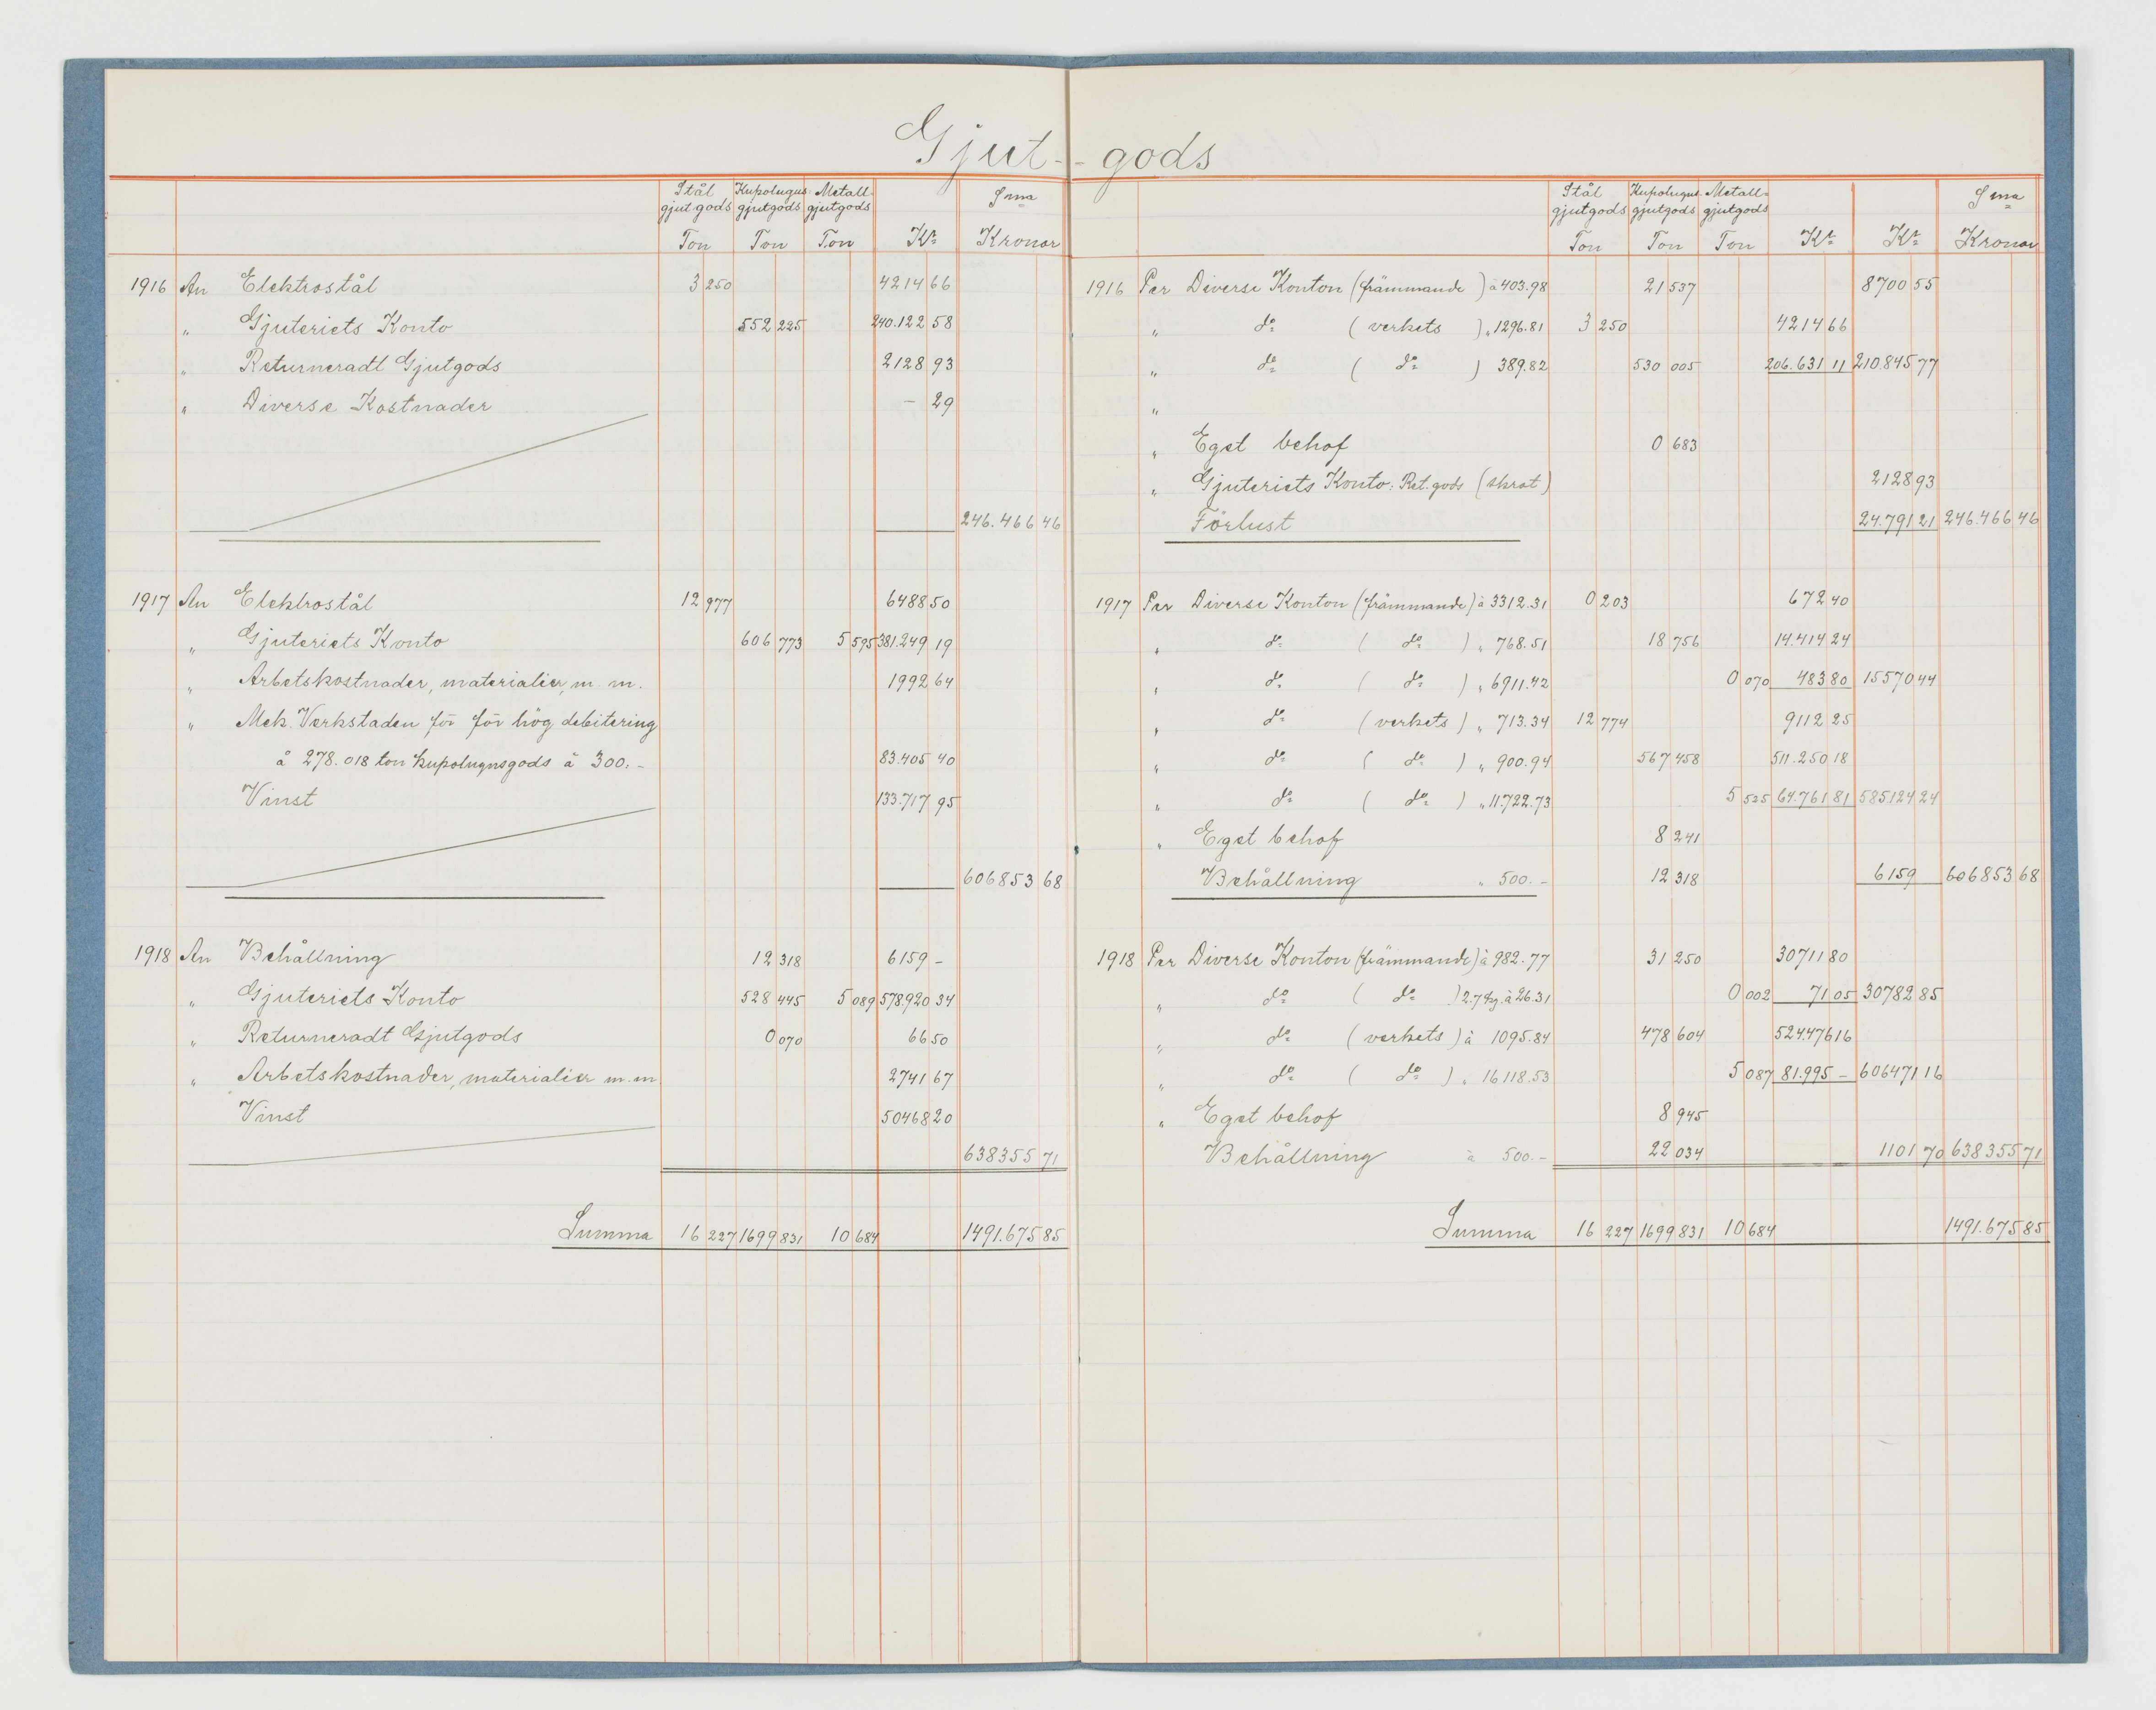 Gjut- - gods
Stål gjutgods Ton Kupolugns gjutgods Ton Metall- gjutgods Ton Kr Sma Kronor
1916 An Elektrostål 3 250 4214 66
" Gjuteriets Konto 552 225 240.122 58
" Returneradt Gjutgods 2128 93
" Diverse Kostnader – 29
246.466 46
1917 An Elektrostål 12 977 6488 50
" Gjuteriets Konto 606 773 5 595 381.249 19
" Arbetskostnader, materialier, m. m. 1992 64
" Mek. Verkstaden för för hög debitering
å 278.018 ton kupolugnsgods à 300.- 83.405 40
Vinst 133.717 95
606853 68
1918 An Behållning 12 318 6159 –
" Gjuteriets Konto 528 445 5 089 578.920 34
" Returneradt Gjutgods 0 070 66 50
" Arbetskostnader, materialier m. m 2741 67
Vinst 50468 20
638355 71
Summa 16 227 1699 831 10 684 1491.675 85
Stål gjutgods Ton Kupolugns gjutgods Ton Metall- gjutgods Ton Kr Kr Sma Kronor
1916 Per Diverse Konton (främmande) à 403.98 21 537 8700 55
" do (verkets) " 1296.81 3 250 4214 66
" do ( do ) 389.82 530 005 206.631 11 210.845 77
"
" Eget behof 0 683
" Gjuteriets Konto: Ret. gods (skrot) 2128 93
Förlust 24.791 21 246.466 46
1917 Per Diverse Konton (främmande) à 3312.31 0 203 672 40
" do ( do ) " 768.51 18 756 14.414 24
" do ( do ) " 6911.42 0 070 483 80 15570 44
" do (verkets) " 713.34 12 774 9112 25
" do ( do ) " 900.94 567 458 511.250 18
" do ( do ) " 11.722.73 5 525 64.761 81 585124 24
" Eget behof 8 241
Behållning " 500.- 12 318 6159 606853 68
1918 Per Diverse Konton (främmande) à 982.77 31 250 30711 80
" do ( do ) 2.7 kg. à 26.31 0 002 71 05 30782 85
" do (verkets) à 1095.84 478 604 524476 16
" do ( do ) " 16118.53 5 087 81.995 – 606471 16
" Eget behof 8 945
Behållning à 500.- 22 034 1101 70 638355 71
Summa 16 227 1699 831 10 684 1491.675 85